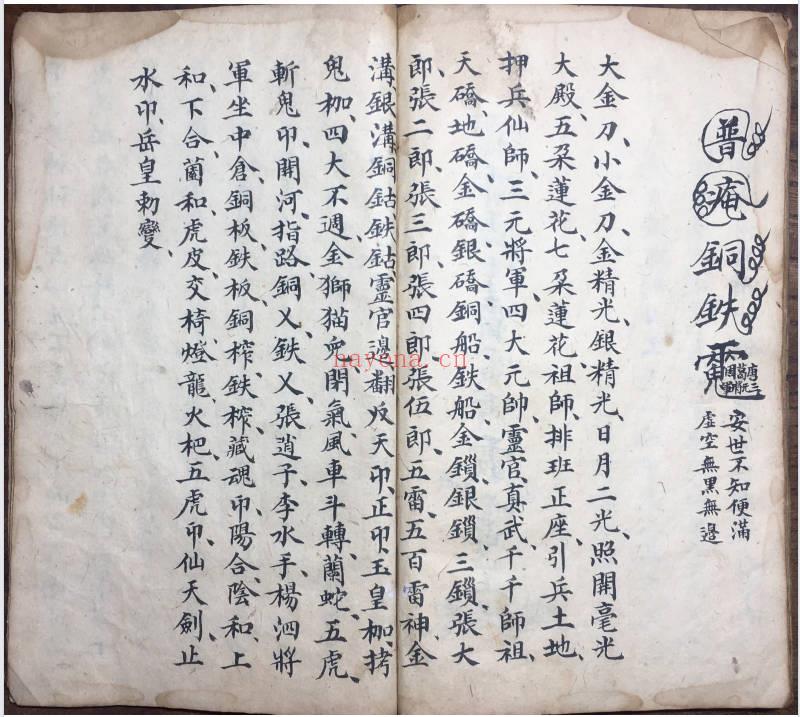 普庵銅鉄
唐三
葛元
周將軍
安世不知便滿
虛空無黑無邊
大金刀、小金刀、金精光、銀精光、日月二光、照開毫光
大殿、五朶蓮花、七朶蓮花、祖師、排班正座、引兵土地、
押兵仙師、三元將軍、四大元帥、靈官真武、千千師祖、
天礄、地礄、金礄、銀礄、銅船、鉄船、金鎖、銀鎖、三鎖、張大
郎、張二郎、張三郎、張四郎、張伍郎、五雷、五百雷神、金
溝、銀溝、銅鈷、鉄鈷、靈官、邊翻、反天印、正印、玉皇枷拷
鬼枷、四大不週、金獅猫兒、閉氣、風車斗轉、蘭蛇、五虎、
斬鬼印、開河、指路、銅乂、鉄乂、張逍子、李水手、楊泗將
軍、坐中倉、銅板、鉄板、銅榨、鉄榨、藏魂印、陽合、陰和、上
和、下合、蘭和、虎皮交椅、燈龍、火杷、五虎印、仙天劍、止
水印、岳皇勅變、
nayena.cn